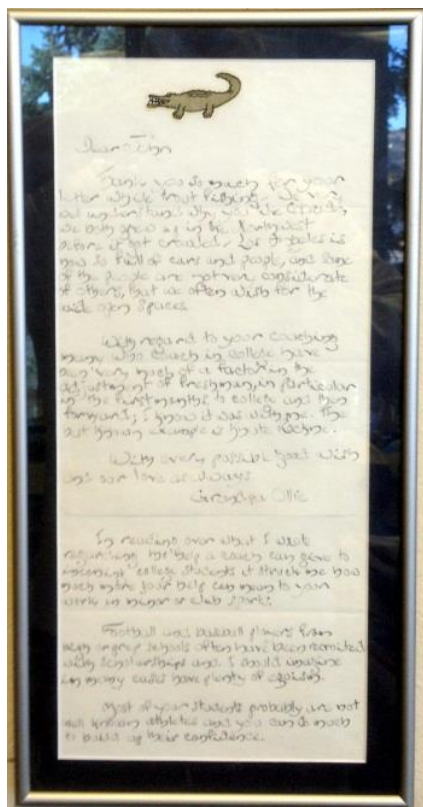 Dear John
Thank you so much for your
letter while trout fishing. We very
well understand why you like
we both grew up in the
before it got crowded. Los Angeles is
now so full of cars and people, and some
of the people are not very considerate
of others, that we often wish for the
wide open spaces.
With regard to your coaching
many who coach in college have
been very much of a factor in the
adjustment of freshman, in particular
in the first months to college and then
forward; I know it was with me. The
best known example is Knute Rockne.
With every possible good wish
and our love as always
Grandpa Ollie
In reading over what I wrote
regarding the help a coach can give to
college students it struck me how
much more your help can mean to your
work in minor or club sports.
Football and baseball players from
high or prep schools often have been recruited
with scholarships and I should imagine
in many cases have plenty of egoism.
Most of your students probably are not
well known athletes and you can do much
to build up their confidence.